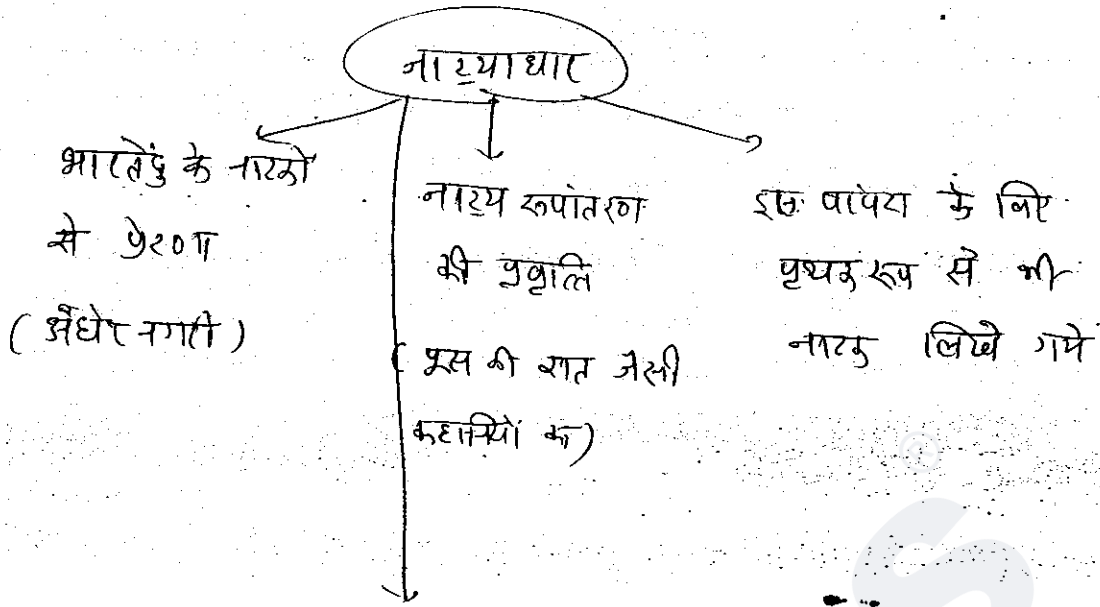 नाट्याधार
भारतेंदु के नाटकों
से प्रेरणा
(अंधेर नगरी)
नाट्य रूपांतरण
की प्रवृत्ति
(पूस की रात जैसी
कहानियों का)
के लिए
पृथक रूप से भी
नाटक लिखे गये